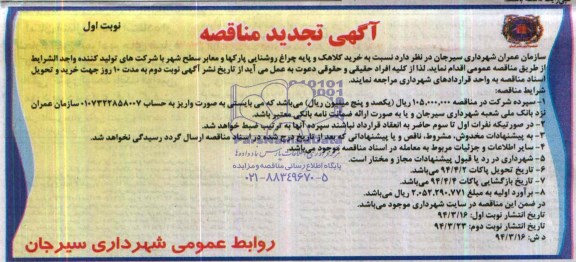 نوبت اول
آگهی تجدید مناقصه
سازمان عمران شهرداری سیرجان در نظر دارد نسبت به خرید کلاهک و پایه چراغ روشنایی پارکها و معابر سطح شهر با شرکت های تولید کننده واجد الشرایط
از طریق مناقصه عمومی اقدام نماید. لذا از کلیه افراد حقیقی و حقوقی دعوت به عمل می آید از تاریخ نشر آگهی نوبت دوم به مدت ۱۰ روز جهت خرید و تحویل
اسناد مناقصه به واحد قراردادهای شهرداری مراجعه نمایند.
شرایط مناقصه:
۱- سپرده شرکت در مناقصه ۱۰۵.۰۰۰.۰۰۰ ریال (یکصد و پنج میلیون ریال) می‌باشد که می بایستی به صورت واریز به حساب ۰۱۰۷۳۲۲۸۵۸۰۰۷ سازمان عمران
نزد بانک ملی شعبه شهرداری سیرجان و یا به صورت ارائه ضمانت نامه بانکی معتبر باشد.
۲- در صورتیکه نفرات اول تا سوم حاضر به انعقاد قرارداد نباشند سپرده آنها به ترتیب ضبط خواهد شد.
۳- به پیشنهادات مخدوش، مشروط، ناقص و یا پیشنهاداتی که بعد از تاریخ درج شده در اسناد مناقصه ارسال گردد رسیدگی نخواهد شد.
۴- سایر اطلاعات و جزئیات مربوط به معامله در اسناد مناقصه موجود می‌باشد.
۵- شهرداری در رد یا قبول پیشنهادات مجاز و مختار است.
۶- تاریخ تحویل پاکات ۹۴/۴/۲
۷- تاریخ بازگشایی پاکات ۹۴/۴/۴ می‌باشد.
۸- برآورد اولیه به مبلغ ۲.۰۵۲.۲۹۰.۷۷۱ ریال می‌باشد.
در ضمن این مناقصه در سایت شهرداری موجود می‌باشد.
تاریخ انتشار نوبت اول: ۹۴/۳/۱۶
تاریخ انتشار نوبت دوم: ۹۴/۳/۲۳
د ش: ۹۴/۳/۱۶
روابط عمومی شهرداری سیرجان
پایگاه اطلاع رسانی مناقصه و مزایده
۰۲۱-۸۸۳۴۹۶۷۰-۵